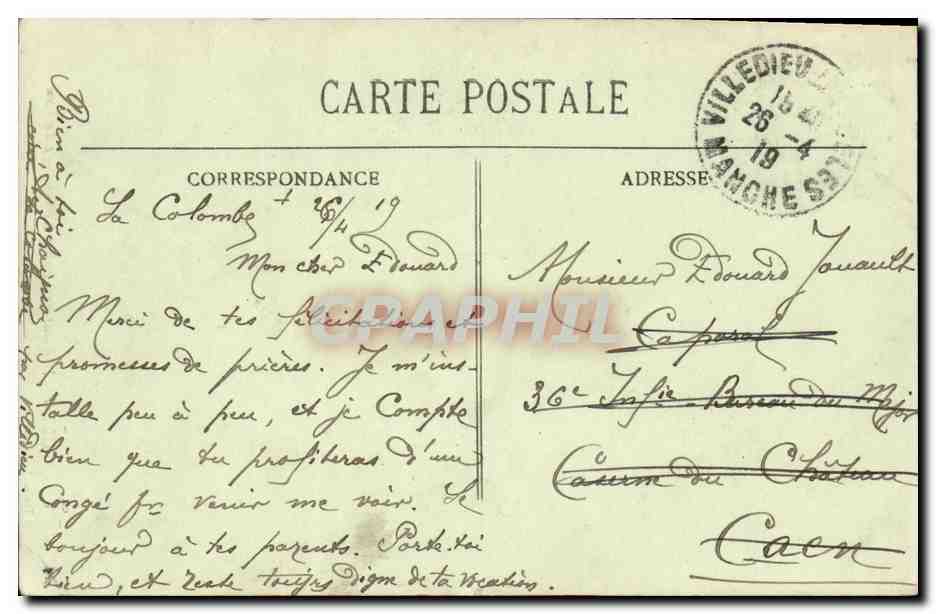 CARTE POSTALE
CORRESPONDANCE
La Colombe + 26/4 19
Mon cher Edouard
Merci de tes félicitations et
promesses de prières. Je m'ins-
talle peu à peu, et je compte
bien que tu profiteras d'un
congé pr venir me voir. Le
bonjour à tes parents. Porte-toi
bien, et reste toujrs digne de ta vocation.
Bien à toi
par Villedieu
ADRESSE
Monsieur Edouard Jouault
Caporal
36e Infie Bureau du Major
Caserne du Château
Caen
VILLEDIEU-LES
26 -4
19
MANCHE
CPAPHIL